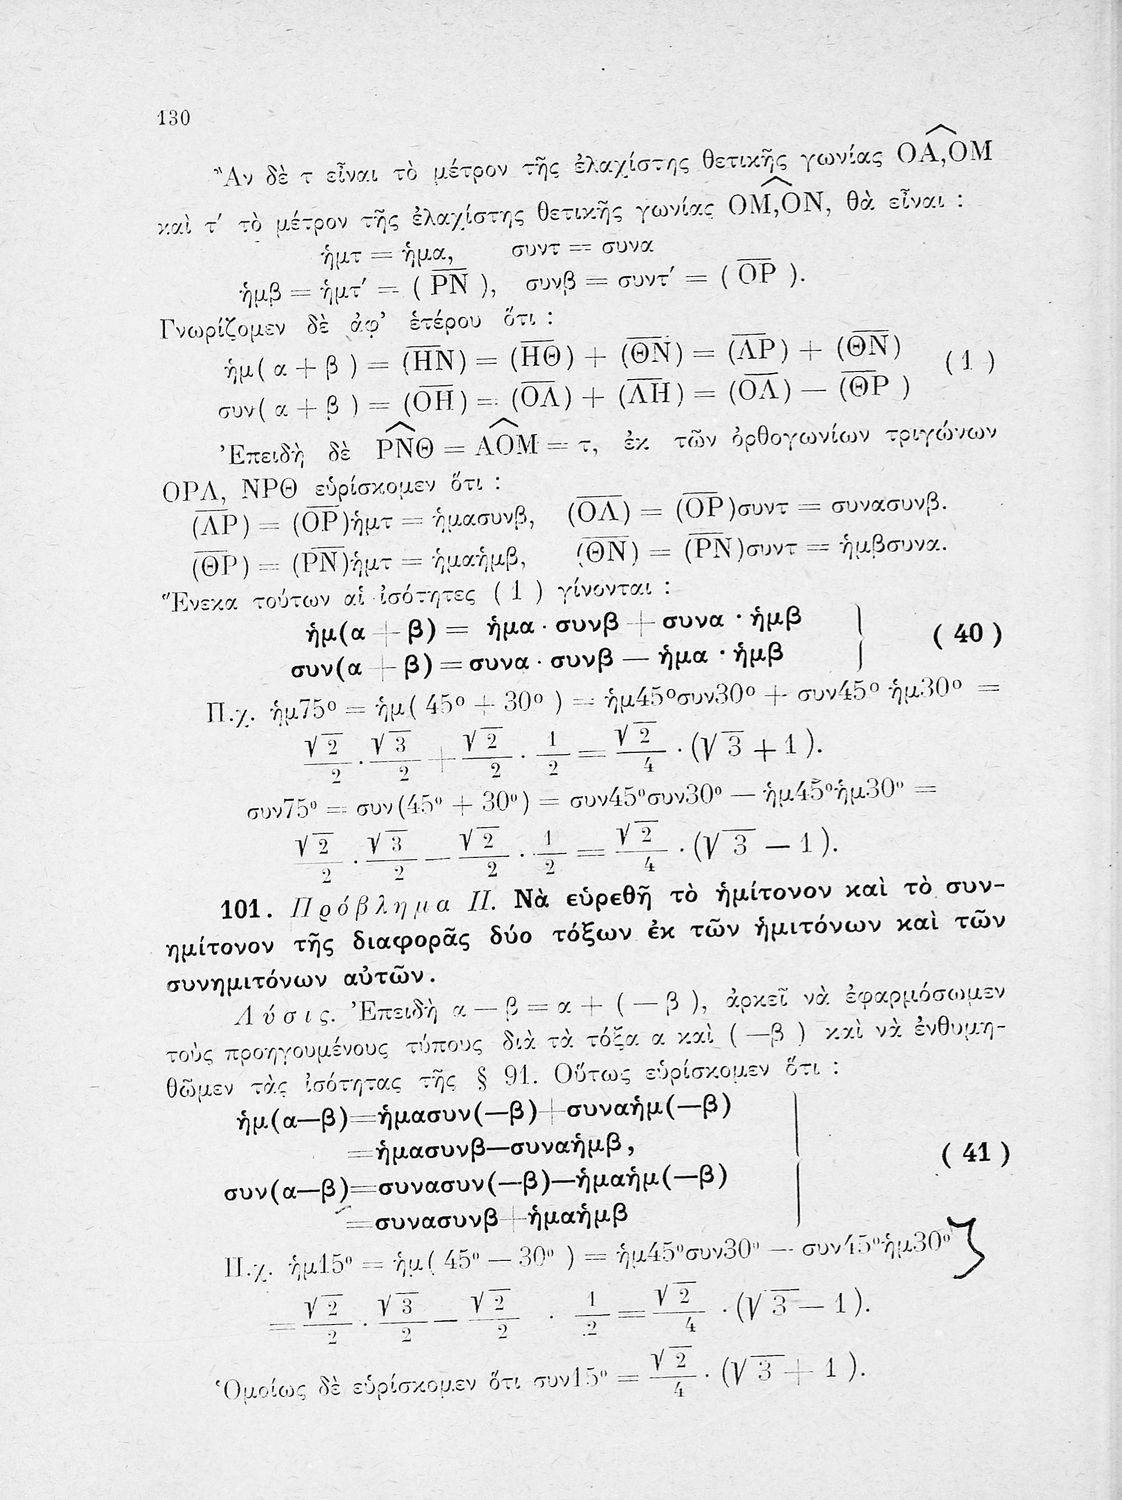 130
Ἂν δὲ τ εἶναι τὸ μέτρον τῆς ἐλαχίστης θετικῆς γωνίας ΟΑ,ΟΜ
καὶ τ′ τὸ μέτρον τῆς ἐλαχίστης θετικῆς γωνίας ΟΜ,ΟΝ, θὰ εἶναι :
ἡμτ = ἡμα, συντ = συνα
ἡμβ = ἡμτ′ = ( ΡΝ ), συνβ = συντ′ = ( ΟΡ ).
Γνωρίζομεν δὲ ἀφ’ ἑτέρου ὅτι :
ἡμ( α + β ) = (ΗΝ) = (ΗΘ) + (ΘΝ) = (ΛΡ) + (ΘΝ) ( 1 )
συν( α + β ) = (ΟΗ) = (ΟΛ) + (ΛΗ) = (ΟΛ) — (ΘΡ )
Ἐπειδὴ δὲ ΡΝΘ = ΑΟΜ = τ, ἐκ τῶν ὀρθογωνίων τριγώνων
ΟΡΛ, ΝΡΘ εὑρίσκομεν ὅτι :
(ΛΡ) = (ΟΡ)ἡμτ = ἡμασυνβ, (ΟΛ) = (ΟΡ)συντ = συνασυνβ.
(ΘΡ) = (ΡΝ)ἡμτ = ἡμαἡμβ, (ΘΝ) = (ΡΝ)συντ = ἡμβσυνα.
Ἕνεκα τούτων αἱ ἰσότητες ( 1 ) γίνονται :
ἡμ(α + β) = ἡμα · συνβ + συνα · ἡμβ
συν(α + β) = συνα · συνβ — ἡμα · ἡμβ ( 40 )
Π.χ. ἡμ75ο = ἡμ( 45ο + 30ο ) = ἡμ45οσυν30ο + συν45ο ἡμ30ο =
√2/2 · √3/2 + √2/2 · 1/2 = √2/4 · (√3 + 1 ).
συν75ο = συν(45ο + 30ο) = συν45οσυν30ο — ἡμ45οἡμ30ο =
√2/2 · √3/2 — √2/2 · 1/2 = √2/4 · (√3 — 1 ).
101. Πρόβλημα II. Νὰ εὑρεθῇ τὸ ἡμίτονον καὶ τὸ συν-
ημίτονον τῆς διαφορᾶς δύο τόξων ἐκ τῶν ἡμιτόνων καὶ τῶν
συνημιτόνων αὐτῶν.
Λύσις. Ἐπειδὴ α — β = α + ( — β ), ἀρκεῖ νὰ ἐφαρμόσωμεν
τοὺς προηγουμένους τύπους διὰ τὰ τόξα α καὶ ( —β ) καὶ νὰ ἐνθυμη-
θῶμεν τὰς ἰσότητας τῆς § 91. Οὕτως εὑρίσκομεν ὅτι :
ἡμ(α—β)=ἡμασυν(—β)+συναἡμ(—β)
=ἡμασυνβ—συναἡμβ,
συν(α—β)=συνασυν(—β)—ἡμαἡμ(—β) ( 41 )
=συνασυνβ+ἡμαἡμβ
Π.χ. ἡμ15ο = ἡμ( 45ο — 30ο ) = ἡμ45οσυν30ο — συν45οἡμ30ο
= √2/2 · √3/2 — √2/2 · 1/2 = √2/4 · (√3 — 1 ).
Ὁμοίως δὲ εὑρίσκομεν ὅτι συν15ο = √2/4 · (√3 + 1 ).